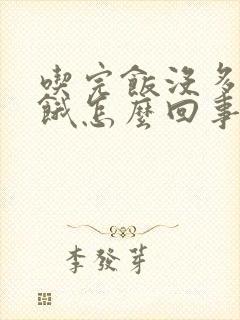 喫完飯沒多
餓怎麼回事
李發芽